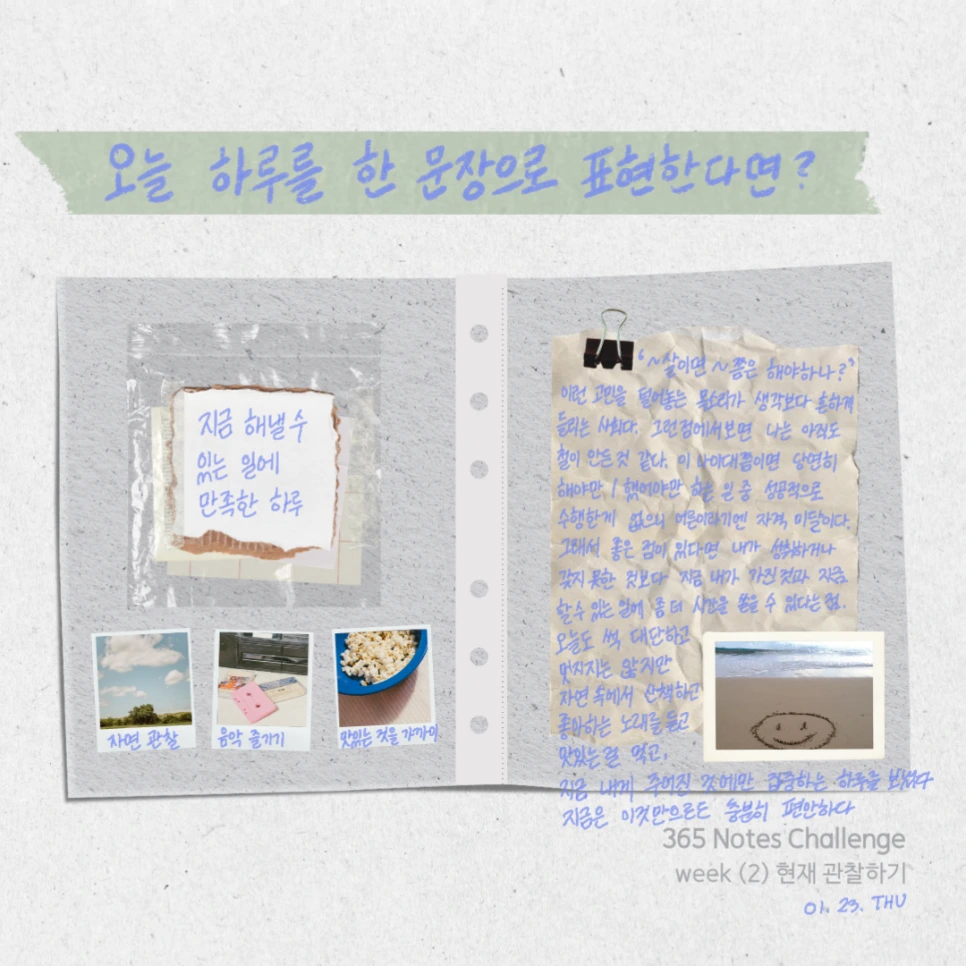 오늘 하루를 한 문장으로 표현한다면?
지금 해낼 수
있는 일에
만족한 하루
자연 관찰
음악 즐기기
맛있는 것을 가까이
"~살이면 ~쯤은 해야하나?"
이런 고민을 털어놓는 목소리가 생각보다 흔하게
들리는 사회다. 그런 점에서 보면 나는 아직도
철이 안 든 것 같다. 이 나이대쯤이면 당연히
해야만 / 했어야만 하는 일 중 성공적으로
수행한게 없으니 어른이라기엔 자격 미달이다.
그래서 좋은 점이 있다면 내가 성취하거나
갖지 못한 것보다 지금 내가 가진 것과 지금
할 수 있는 일에 좀 더 시간을 쏟을 수 있다는 점.
오늘도 썩 대단하고
멋지지는 않지만
자연 속에서 산책하고
좋아하는 노래를 듣고
맛있는 걸 먹고,
지금 내게 주어진 것에만 집중하는 하루를 보냈다
지금은 이것만으로도 충분히 편안하다
365 Notes Challenge
week (2) 현재 관찰하기
01. 23. THU